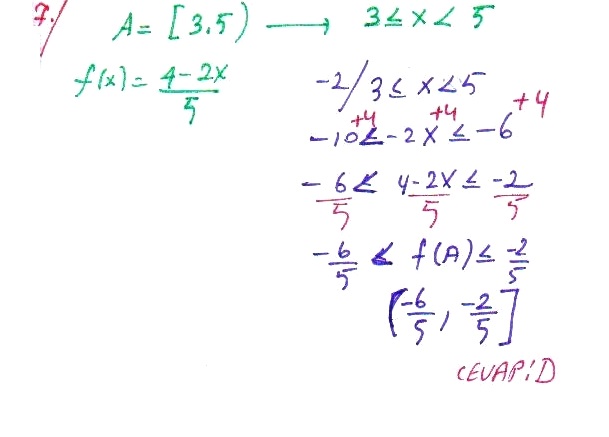 7./ A = [3.5) → 3 ≤ x < 5
f(x) = (4-2x)/5
-2/ 3 ≤ x < 5
-10 < -2x ≤ -6
+4 +4 +4
-6/5 < (4-2x)/5 ≤ -2/5
-6/5 < f(A) ≤ -2/5
(-6/5, -2/5]
CEVAP: D